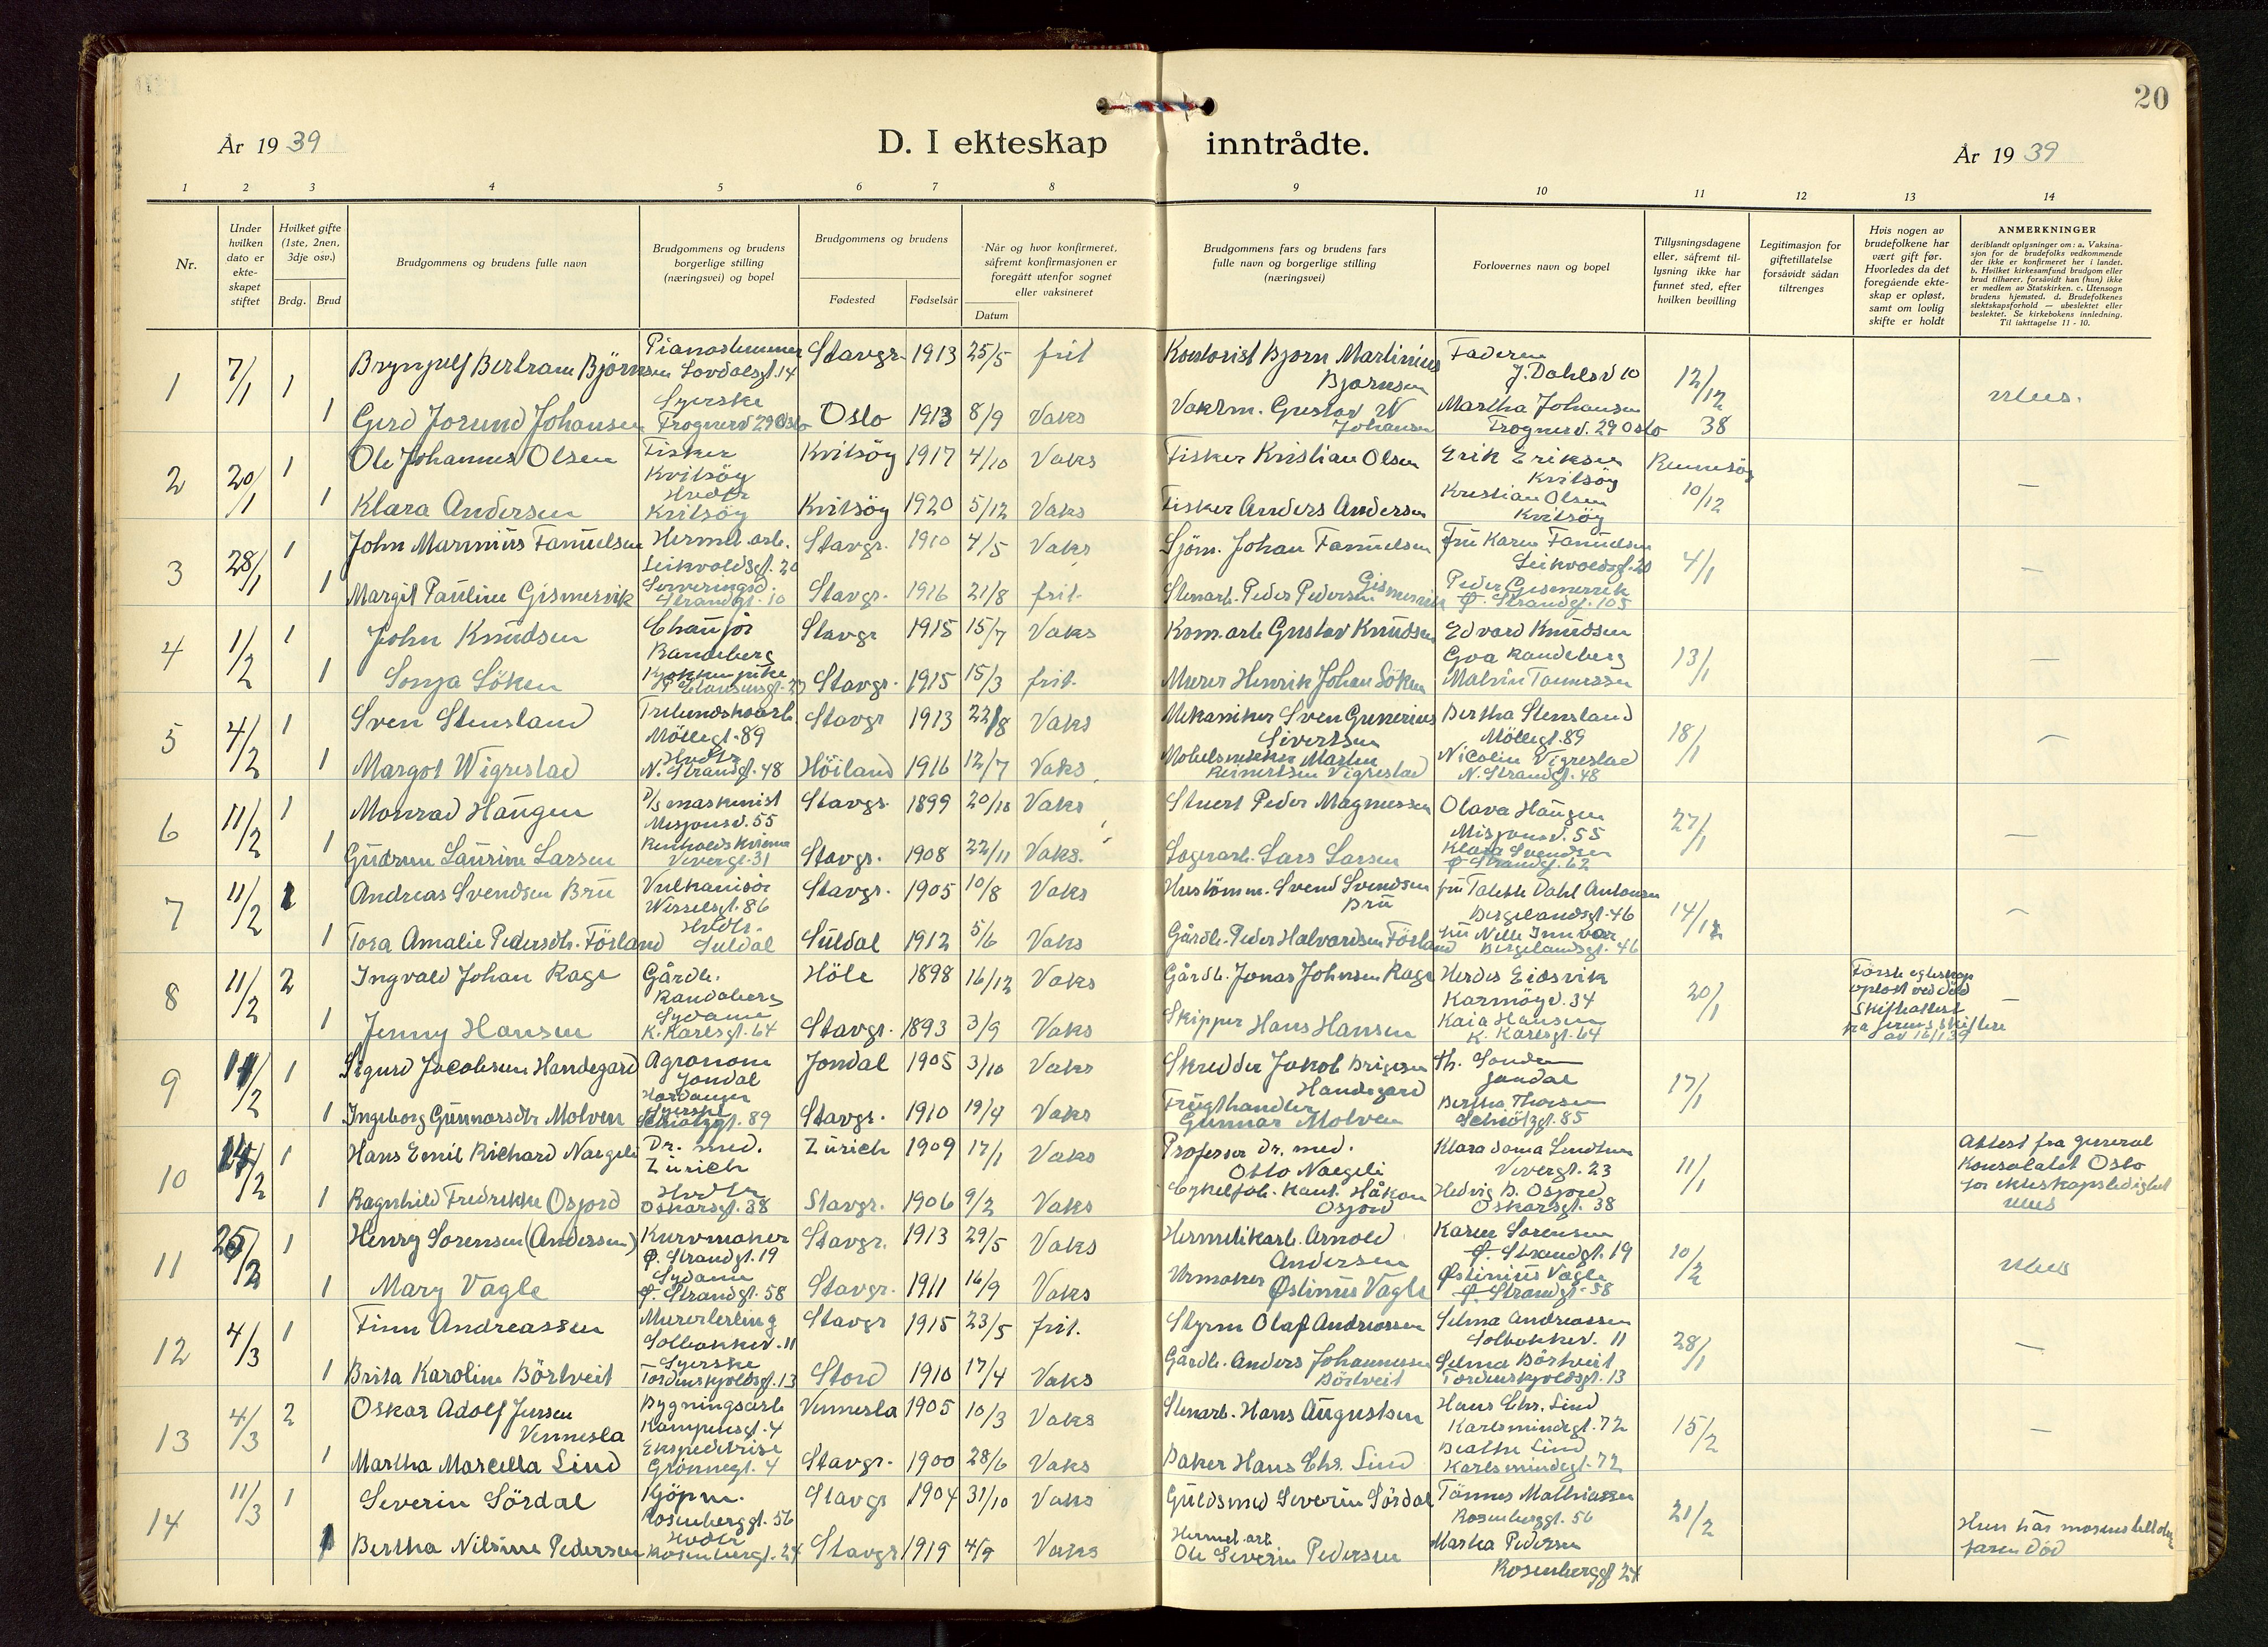 20
År 19 39
D. I ekteskap inntrådte.
År 19 39
1 2 3 4 5 6 7 8 9 10 11 12 13 14
Nr.
Under hvilken dato er ekte-skapet stiftet
Hvilket gifte (1ste, 2nen, 3dje osv.)
Brdg. Brud
Brudgommens og brudens fulle navn
Brudgommens og brudens borgerlige stilling (næringsvei) og bopel
Brudgommens og brudens
Fødested Fødselsår
Når og hvor konfirmeret, såfremt konfirmasjonen er foregått utenfor sognet eller vaksineret
Datum
Brudgommens fars og brudens fars fulle navn og borgerlige stilling (næringsvei)
Forlovernes navn og bopel
Tillysningsdagene eller, såfremt til-lysning ikke har funnet sted, efter hvilken bevilling
Legitimasjon for giftetillatelse forsåvidt sådan tiltrenges
Hvis nogen av brudefolkene har vært gift før. Hvorledes da det foregående ekte-skap er opløst, samt om lovlig skifte er holdt
ANMERKNINGER
deriblandt oplysninger om: a. Vaksina-sjon for de brudefolks vedkommende der ikke er konfirmeret her i landet. b. Hvilket kirkesamfund brudgom eller brud tilhører, forsåvidt han (hun) ikke er medlem av Statskirken. c. Utensogn brudens hjemsted. d. Brudefolkenes slektskapsforhold — ubeslektet eller beslektet. Se kirkebokens innledning. Til iakttagelse 11 - 10.
1 7/1 1 Brynjulf Bertram Björnsen Pianostemmer Lovdalsgt. 14 Stavgr. 1913 25/5 frit Kontorist Bjorn Martinius Bjornsen Faderen J. Dahlsv 10 12/12 38 ubes.
1 Gerd Jorund Johansen Syerske Frognerv 29 Oslo Oslo 1913 8/9 Vaks Vaktm. Gustav W Johansen Martha Johansen Frognerv. 29 Oslo
2 20/1 1 Ole Johannes Olsen Fisker Kvitsöy Kvitsöy 1917 4/10 Vaks Fisker Kristian Olsen Erik Eriksen Kvitsöy Rennesöy 10/12 —
1 Klara Andersen Husdtr Kvitsöy Kvitsöy 1920 5/12 Vaks Fisker Anders Andersen Kristian Olsen Kvitsöy
3 28/1 1 John Marinius Fanuelsen Hermt. arb. Leikvoldsgt. 20 Stavgr. 1910 4/5 Vaks Sjöm. Johan Fanuelsen Fru Karen Fanuelsen Leikvoldsgt. 20 4/1 —
1 Margit Pauline Gismervik Serveringsd. Strandgt. 10 Stavgr. 1916 21/8 frit. Stenarb. Peder Pedersen Gismervik Peder Gismervik Ø. Strandgt. 105
4 11/2 1 John Knudsen Chauför Randeberg Stavgr 1915 15/7 Vaks Kom. arb Gustav Knudsen Edvard Knudsen Goa Randeberg 13/1 —
1 Sonja Söken Kjökkenpike Stavgr. 1915 15/3 frit. Murer Henrik Johan Söken Malvin Tonnessen
5 4/2 1 Sven Stensland Möllegt. 89 Stavgr 1913 22/8 Vaks Mekaniker Sven Gunerius Sivertsen Bertha Stensland Möllegt. 89 18/1 —
1 Margot Wigrestad Husdtr N. Strandgt. 48 Höiland 1916 12/7 Vaks Mobelsnekker Martin Reinertsen Vigrestad Nicolin Vigrestad N. Strandgt. 48
6 11/2 1 Monrad Haugen D/S maskinist Misjonsv. 55 Stavgr. 1899 20/10 Vaks Stuert Peder Magnussen Olava Haugen Misjonsv. 55 27/1 —
1 Gudrun Laurine Larsen Renholdskvinne Vevergt. 31 Stavgr. 1908 22/11 Vaks. Lagerarb. Lars Larsen Klara Svendsen Ø Strandgt. 62
7 11/2 1 Andreas Svendsen Bru Vulkanisör Wesselsgt. 86 Stavgr. 1905 10/8 Vaks Hustömm. Svend Svendsen Bru fru Tolette Dahl Antonsen Bergelandsgt. 46 14/12 —
1 Tora Amalie Pedersdtr. Förland Husdtr. Suldal Suldal 1912 5/6 Vaks Gårdb. Peder Halvardsen Förland fru Nelle Innvær Bergelandsgt. 46
8 11/2 2 Ingvald Johan Rage Gårdb. Randaberg Höle 1898 16/12 Vaks Gårdb. Jonas Johnsen Rage Herdis Eidsvik Karmöygt. 34 20/1 Förste egteskap oplöst ved död Skifteattest fra Jerens skifterr av 16/1 39 —
1 Jenny Hansen Sydame K. Karlsgt. 64 Stavgr. 1893 3/9 Vaks Skipper Hans Hansen Kaia Hansen K. Karlsgt. 64
9 11/2 1 Sigurd Jacobsen Handegard Agronom Jondal Hardanger Jondal 1905 3/10 Vaks Skredder Jakob Brigtsen Handegard Th. Sonden Jondal 17/1
1 Ingeborg Gunnarsdtr Molven Syerske Schiötzgt. 89 Stavgr. 1910 19/4 Vaks Frugthandler Gunnar Molven Bertha Thorsen Schiötzgt. 85
10 14/2 1 Hans Emil Richard Naegeli Dr. med. Zürich Zürich 1909 17/1 Vaks Professor Dr. med. Otto Naegeli Klara Doma Lindtner Vevergt. 23 11/1 Attest fra general Konsulatet Oslo for ekteskapsledighet ubes
1 Ragnhild Fredrikke Osjord Husdtr Oskarsgt. 38 Stavgr. 1906 9/2 Vaks Cykelfab. kant. Håkon Osjord Hedvig D. Osjord Oskarsgt. 38
11 25/2 1 Henry Sorensen (Andersen) Kurvmaker Ø. Strandgt. 19 Stavgr. 1913 29/5 Vaks Hermetikarb. Arnold Andersen Karen Sorensen Ø. Strandgt. 19 10/2 ubes
1 Mary Vagle Sydame Ø. Strandgt. 58 Stavgr. 1911 16/9 Vaks Urmaker Østinius Vagle Østinius Vagle Ø. Strandgt. 58
12 4/3 1 Finn Andreassen Murerlerling Solbakkev. 11 Stavgr 1915 23/5 frit. Styrm Olaf Andreassen Selma Andreassen Solbakkev. 11 28/1 —
1 Brita Karoline Börtveit Syerske Tordenskjoldsgt. 13 Stord 1910 17/4 Vaks Gårdb. Anders Johannessen Börtveit Selma Börtveit Tordenskjoldsgt. 13
13 4/3 2 Oskar Adolf Jensen Vennesla Bygningsarb Kampensgt. 4 Vennesla 1905 10/3 Vaks Stenarb. Hans Augustsen Hans Chr. Lind Karlsmindegt. 72 15/2 —
1 Martha Marcella Lind Ekspeditrise Grönnegt. 4 Stavgr. 1900 28/6 Vaks Baker Hans Chr. Lind Beathe Lind Karlsmindegt. 72
14 11/3 1 Severin Sördal Kjöpm. Rosenberggt. 56 Stavgr 1904 31/10 Vaks Guldsmed Severin Sördal Tönnes Mathiassen Rosenberggt. 56 21/2
1 Bertha Nilsine Pedersen Husdtr Rosenberggt. 24 Stavgr 1919 4/9 Vaks Hermet. arb Ole Severin Pedersen Martha Pedersen Rosenberggt 24 Hun har morens faren död